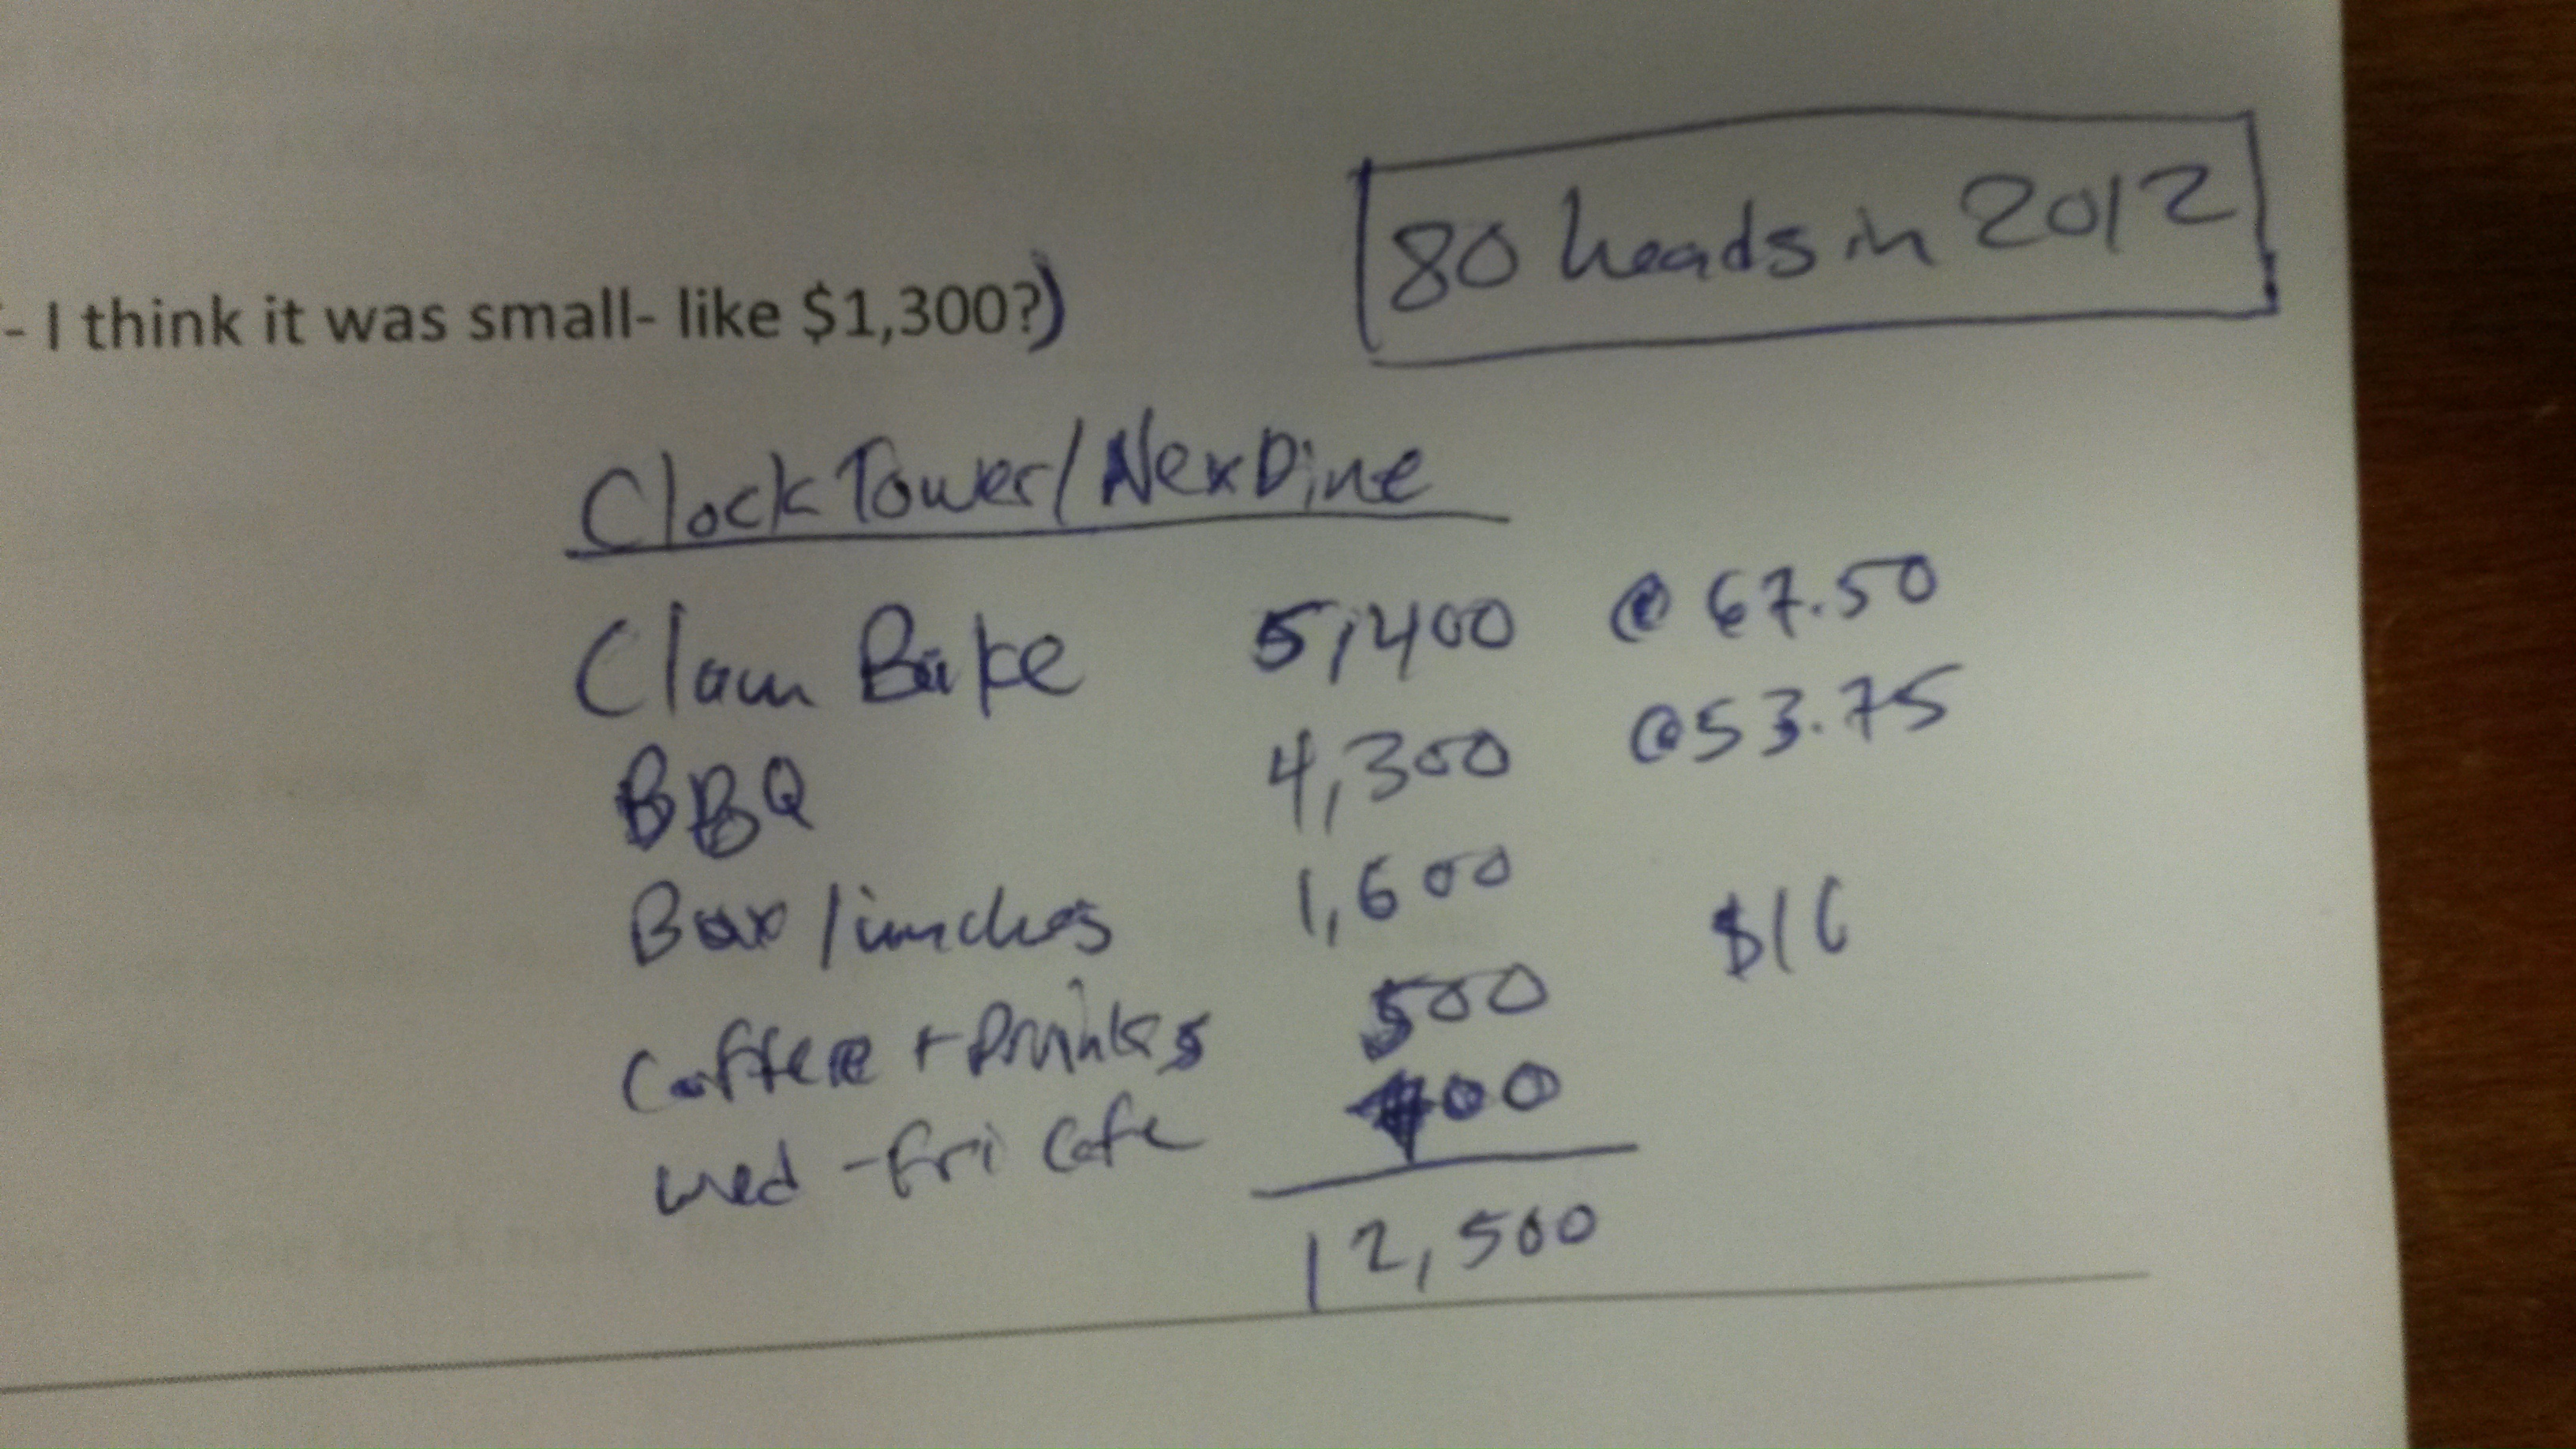 80 heads in 2012
- I think it was small- like $1,300?)
Clock Tower/NexDine
Clam Bake 5,400 @ 67.50
BBQ 4,300 @53.75
Box lunches 1,600 $16
Coffee + Drinks 500
Wed - Fri Cafe 00
12,500